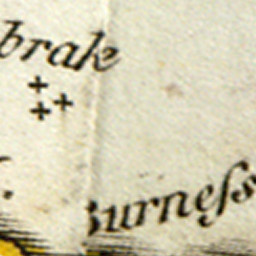 brak
urneſs